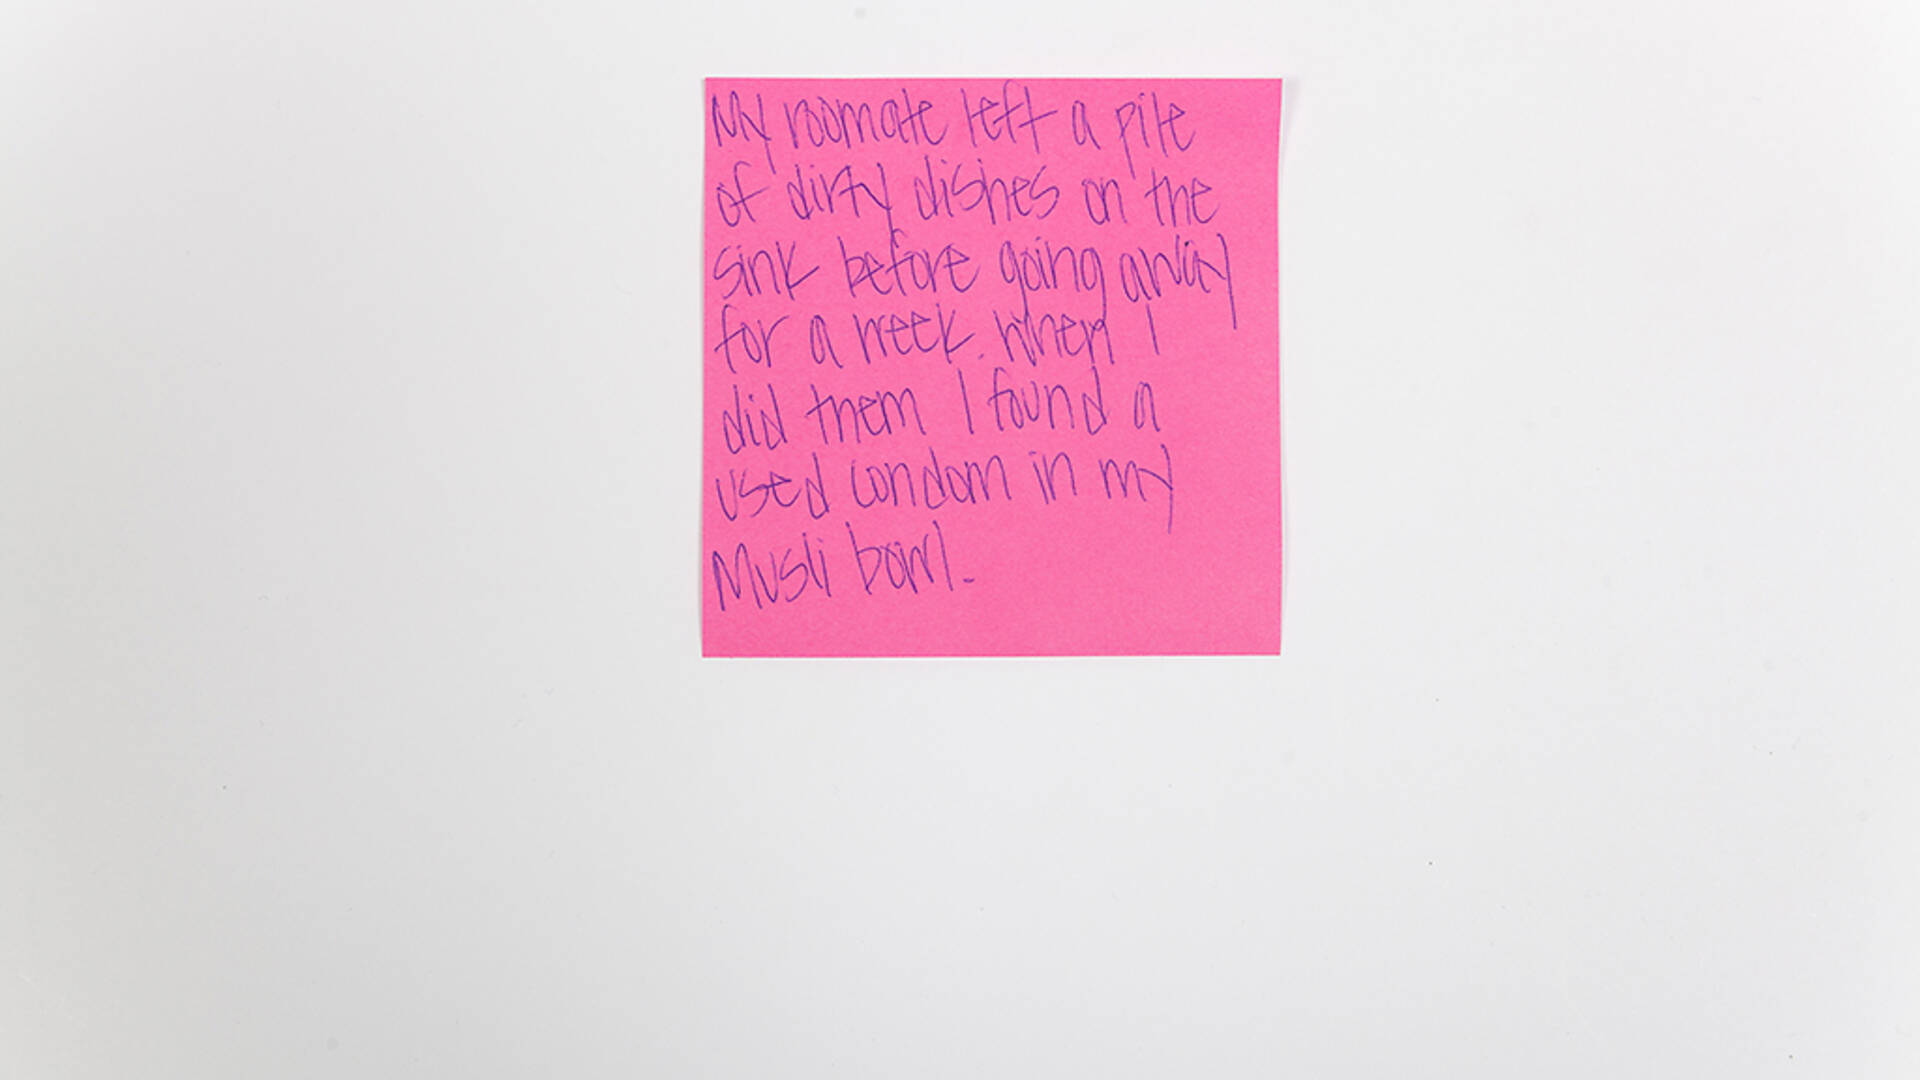 My roomate left a pile
of dirty dishes on the
sink before going away
for a week. When I
did them I found a
used condom in my
Musli bowl.